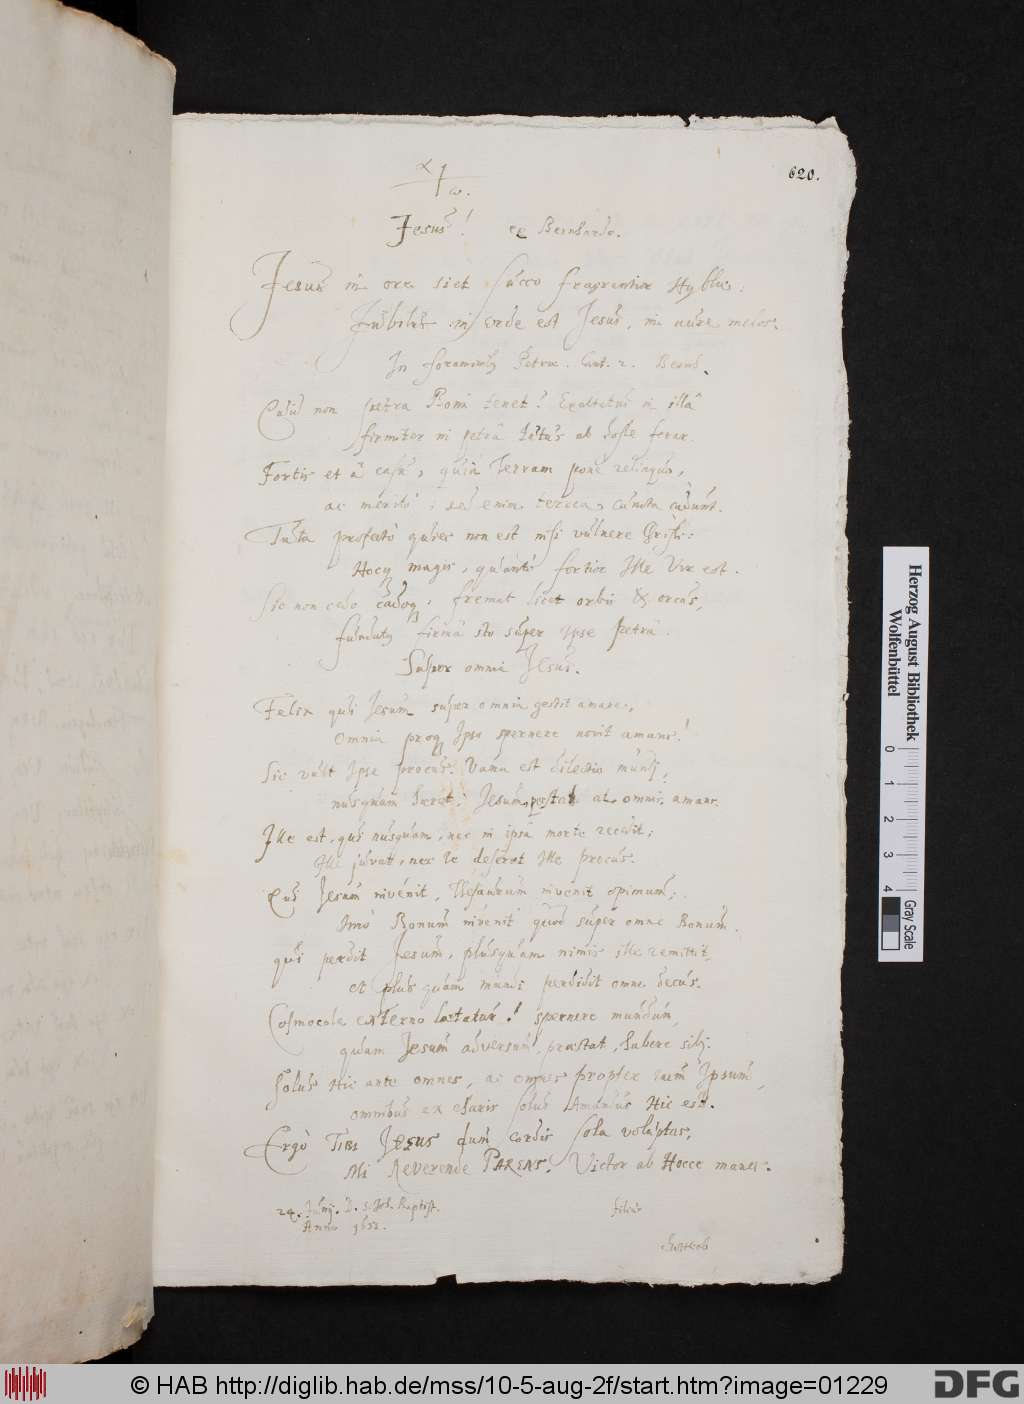 620.
α ω.
Jesus! ex Bernhardo.
Jesus in ore siet succo fragrantior Hyblae:
Jubilus in corde est Jesus, in aure melos.
In foraminib9 Petrae. Cant. 2. Bernh.
Quid non petra Boni tenet? Exaltatus in illâ
firmiter in petrâ tutus ab hoste ferar.
Fortis et â casu, quia Terram ponè relinquo,
ac meritò; sed enim terrea cuncta cadunt.
Tuta profectò quies non est nisi vulnere Christi:
Hocq magis, quantò fortior Ille Vir est.
Sic non cedo cadoq, fremat licet orbis & orcus,
fundat9 firmâ sto super ipse petrâ.
Super omnia Jesus.
Felix qui Jesum super omnia gestit amare,
omnia proq Ipso spernere novit amans!
Sic vult Ipse procus. Vana est dilectio mundi,
nusquam haeret: Jesum praestat at omnis amans.
Ille est, qui nusquam, nec in ipsâ morte recedit;
Ille juvat, nec Te deseret Ille procus.
Qui Jesum invenit, Thesaurum invenit opimum;
Imò Bonum invenit quod super omne Bonum.
qui perdit Jesum, plusquam nimis ille remittit,
et plus quàm mundi perdidit omne decus.
Cosmocolae externo laetatur! spernere mundum,
quam Jesum adversum, praestat, habere sibj.
Solus Hic ante omnes, ac omnes propter eum Ipsum,
omnibus ex charis solus Amandus Hic est.
Ergò TIBI JESUS dum cordis sola voluptas,
Mi Reverende PARENS. Victor ab Hocce manes.
24. Junij. D. S. Joh. Baptist.
Anno 1652.
filius
Herzog August Bibliothek
Wolfenbüttel
0 1 2 3 4
Gray Scale
© HAB http://diglib.hab.de/mss/10-5-aug-2f/start.htm?image=01229
DFG